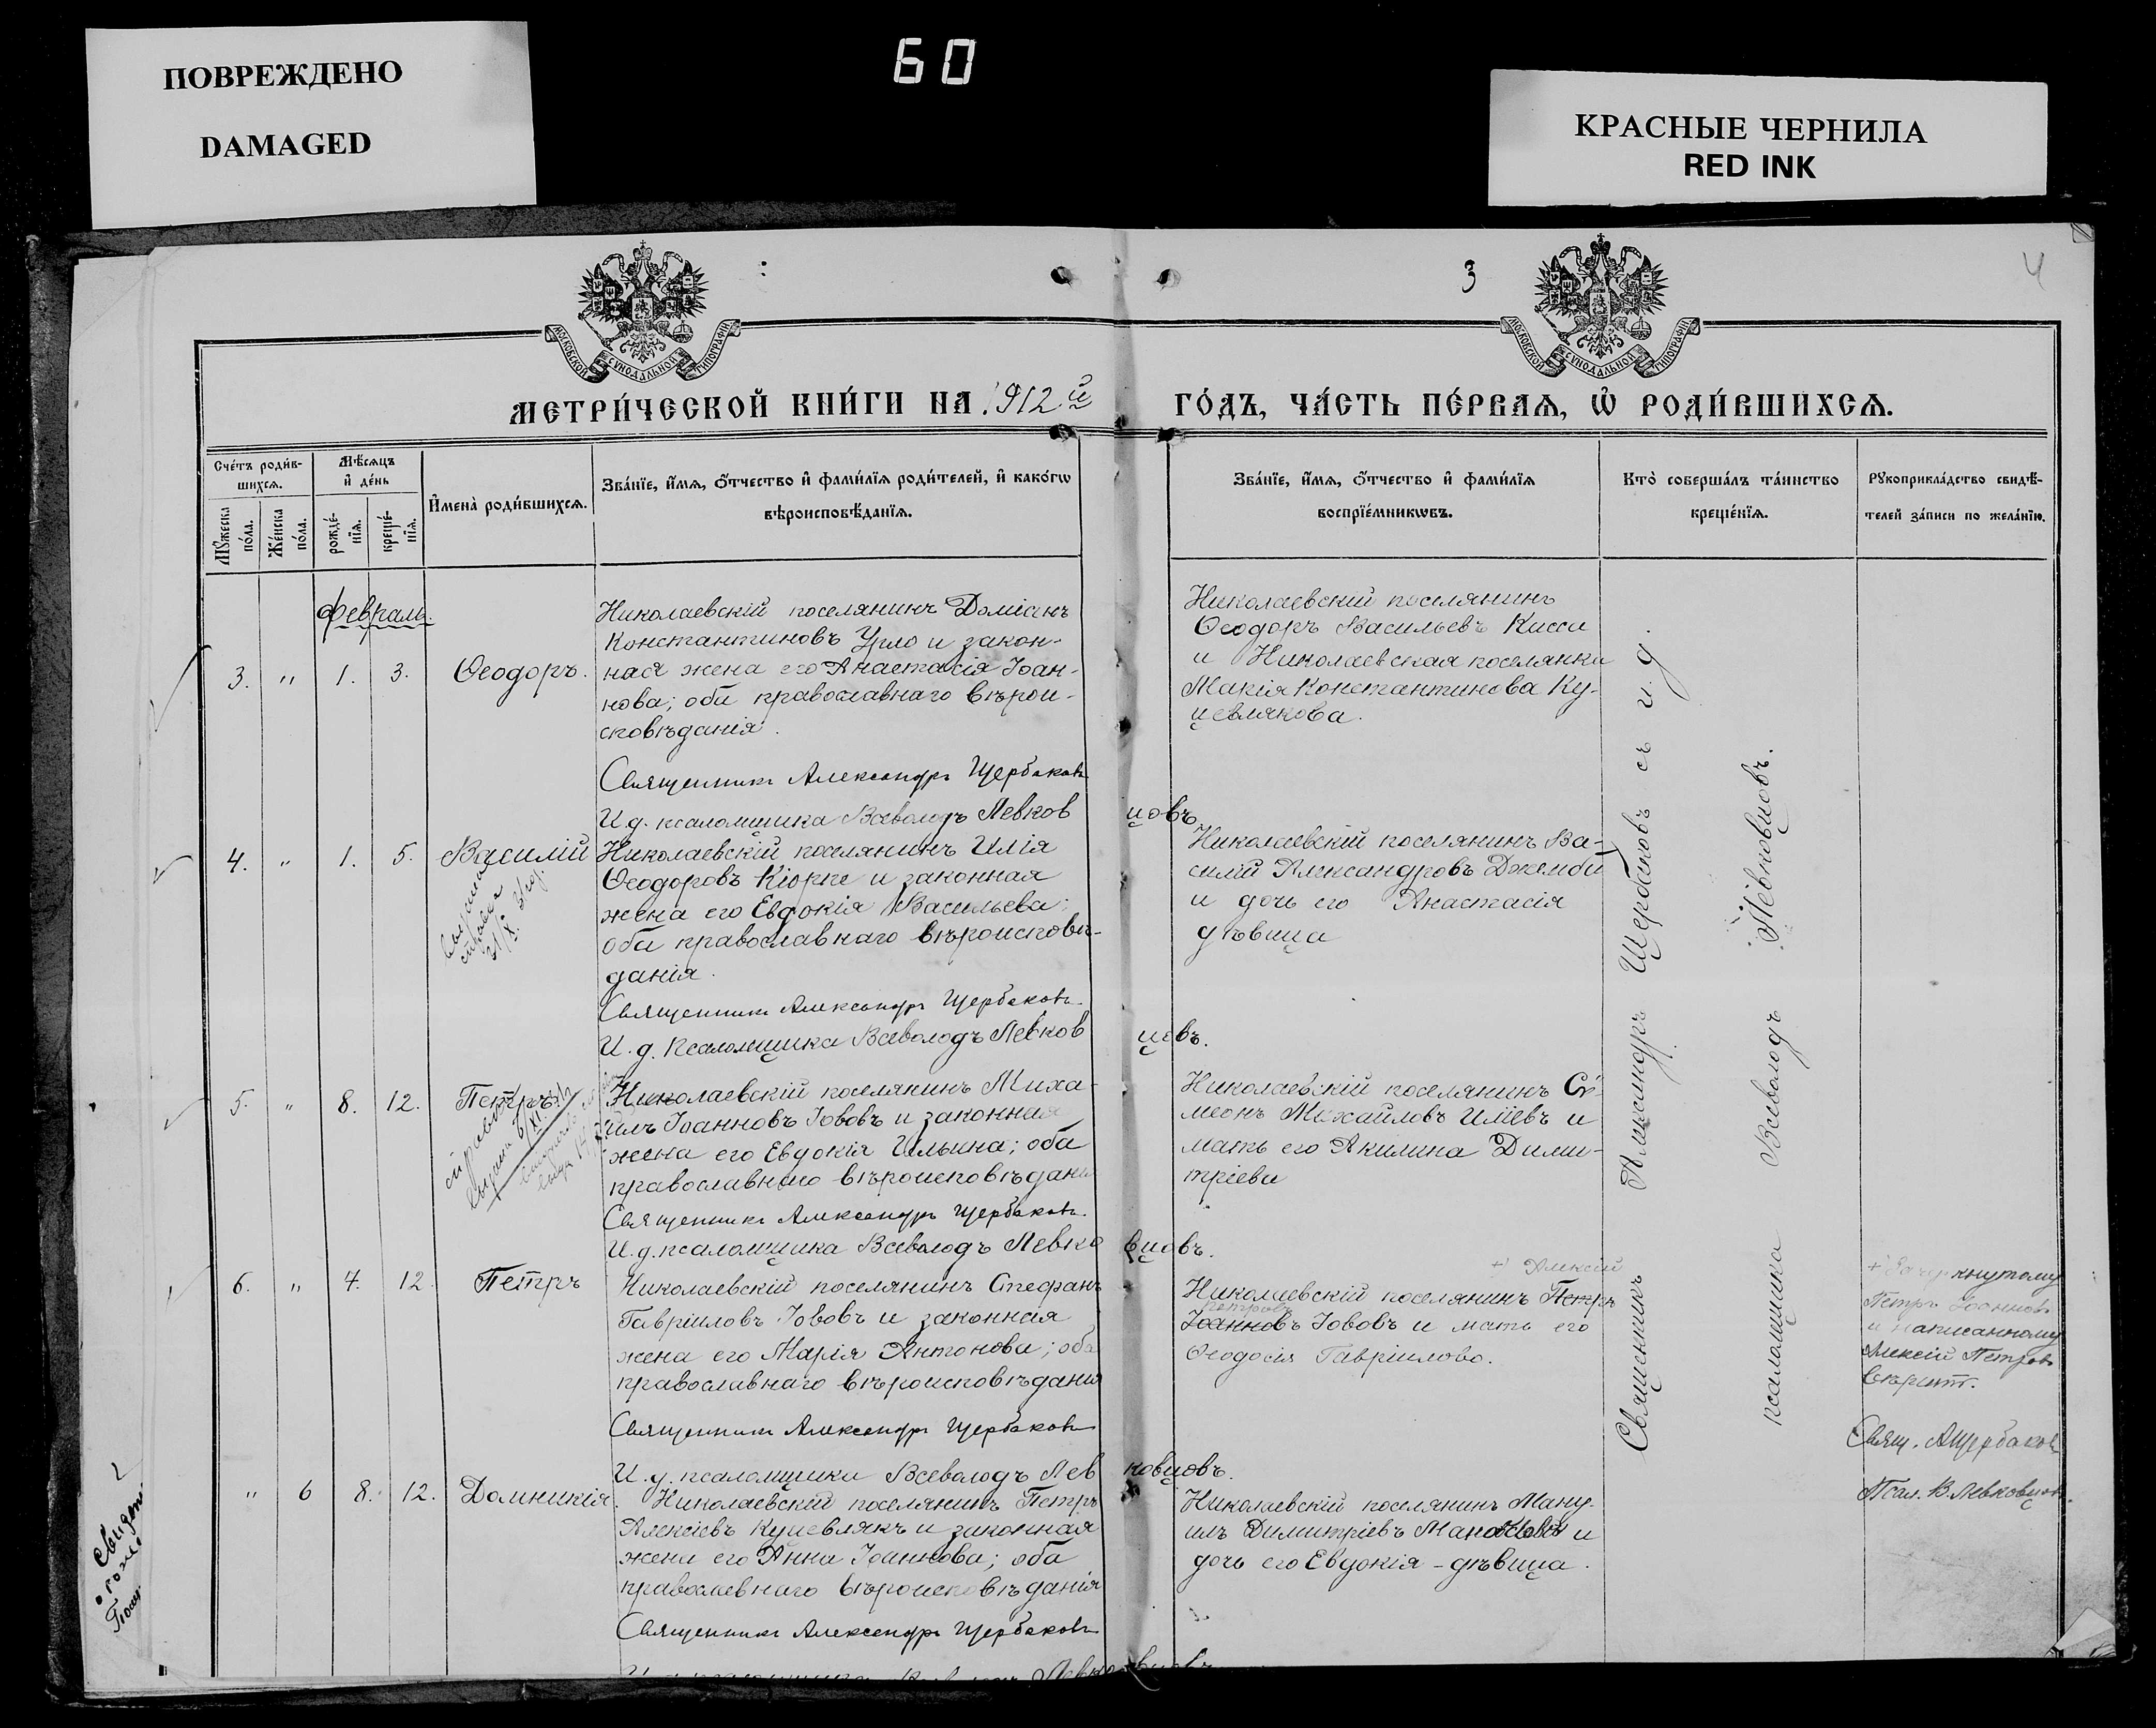 ПОВРЕЖДЕНО
DAMAGED
60
КРАСНЫЕ ЧЕРНИЛА
RED INK
3
4
МОСКОВСКОЙ СѴНОДАЛЬНОЙ ТИПОГРАФІИ
МОСКОВСКОЙ СѴНОДАЛЬНОЙ ТИПОГРАФІИ
МЕТРИ́ЧЕСКОЙ КНИ́ГИ НА 1912 й ГО́ДЪ, ЧА́СТЬ ПЕ́РВАѦ, Ѡ҆ РОДИ́ВШИХСѦ.
Сче́тъ роди́в-
шихсѧ.
Мꙋ́жеска по́ла.
Же́нска по́ла.
Мѣ́сѧцъ
и҆ де́нь
рожде́-
нїѧ.
креще́-
нїѧ.
И҆мена̀ роди́вшихсѧ.
Зва́нїе, и҆́мѧ, ѻ҆́тчество и҆ фами́лїѧ роди́телей, и҆ како́гѡ
вѣроисповѣ́данїѧ.
Зва́нїе, и҆́мѧ, ѻ҆́тчество и҆ фами́лїѧ
воспрїе́мникѡвъ.
Кто̀ соверша́лъ та́инство
креще́нїѧ.
Рꙋкоприкла́дство свидѣ́-
телей за́писи по жела́нїю.
Февраль.
3. " 1. 3. Ѳеодоръ.
Николаевскій поселянинъ Доміанъ
Константиновъ Узло и закон-
ная жена его Анастасія Іоан-
нова; оба православнаго вѣрои-
сповѣданія.
Священникъ Александръ Щербаковъ
И.д. псаломщика Всеволодъ Левковцовъ
Николаевскій поселянинъ
Ѳеодоръ Васильевъ Кисси
и Николаевская поселянка
Макія Константинова Ку-
цевлякова.
4. " 1. 5. Василій
Выдана
справка
21/X
Николаевскій поселянинъ Илія
Ѳеодоровъ Кіорпе и законная
жена его Евдокія Васильева;
оба православнаго вѣроисповѣ-
данія.
Священникъ Александръ Щербаковъ.
И.д. псаломщика Всеволодъ Левковцовъ.
Николаевскій поселянинъ Ва-
силій Александровъ Джемби
и дочь его Анастасія
дѣвица
5. " 8. 12. Петръ
справка
выдана
Николаевскій поселянинъ Миха-
илъ Іоанновъ Іововъ и законная
жена его Евдокія Ильина; оба
православнаго вѣроисповѣдані
Священникъ Александръ Щербаковъ.
И.д. псаломщика Всеволодъ Левковцовъ.
Николаевскій поселянинъ Си-
меонъ Михайловъ Иліевъ и
мать его Акилина Дими-
тріева
6. " 7. 12. Петръ
Николаевскій поселянинъ Стефанъ
Гавріиловъ Іововъ и законная
жена его Марія Антонова; оба
православнаго вѣроисповѣданія
Священникъ Александръ Щербаковъ
И.д. псаломщика Всеволодъ Левковцовъ.
+) Алексій
Николаевскій поселянинъ Петръ
Петровъ
Іоанновъ Іововъ и мать его
Ѳеодосія Гавріилова.
+ Зачеркнутому
Петръ Іоанновъ
и написанному
Алексій Петровъ
вѣрить.
Свящ. А Щербаковъ
Псал. В. Левковцовъ.
" 6 8. 12. Домникія.
Николаевскій поселянинъ Петръ
Алексіевъ Куцевлякъ и законная
жена его Анна Іоаннова; оба
православнаго вѣроисповѣданія
Священникъ Александръ Щербаковъ
Николаевскій поселянинъМану-
илъ Димитріевъ и
дочь его Евдокія - дѣвица.
Священникъ Александръ Щербаковъ съ и. д.
псаломщика Всеволодъ Левковцовъ.